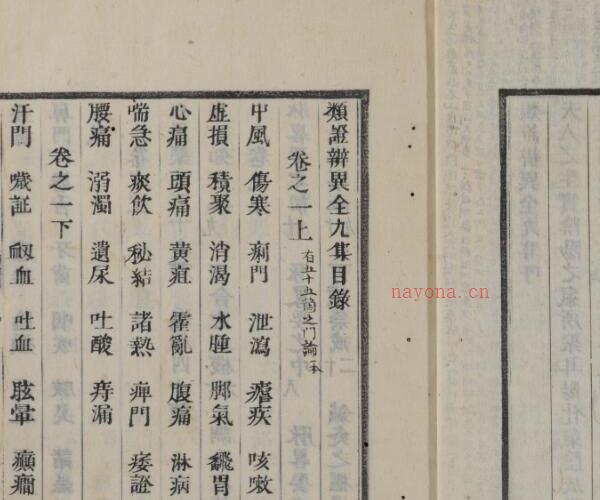 類證辨異全九集目錄
卷之一上 有五十五箇之門論一本
中風 傷寒 痢門 泄瀉 瘧疾 咳嗽
虛損 積聚 消渴 水腫 脚氣 飜胃
心痛 頭痛 黃疸 霍亂 腹痛 淋病
喘急 痰飲 秘結 諸熱 痺門 痿證
腰痛 溺濁 遺尿 吐酸 痔漏
卷之一下
汗門 欬証 衂血 吐血 眩暈 癲癎
nayona.cn